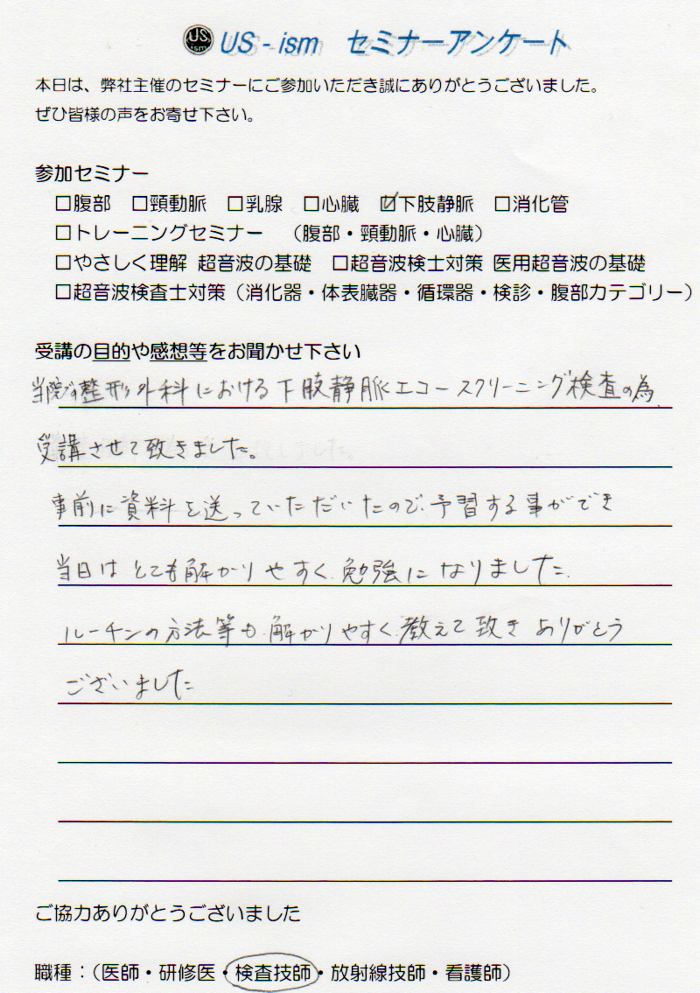 US ism US-ism セミナーアンケート
本日は、弊社主催のセミナーにご参加いただき誠にありがとうございました。
ぜひ皆様の声をお寄せ下さい。
参加セミナー
□腹部 □頸動脈 □乳腺 □心臓 ☑下肢静脈 □消化管
□トレーニングセミナー （腹部・頸動脈・心臓）
□やさしく理解 超音波の基礎 □超音波検士対策 医用超音波の基礎
□超音波検査士対策（消化器・体表臓器・循環器・検診・腹部カテゴリー）
受講の目的や感想等をお聞かせ下さい
当院の整形外科における下肢静脈エコースクリーニング検査の為、
受講させて致きました。
事前に資料を送っていただいたので、予習する事ができ
当日はとても解かりやすく、勉強になりました。
ルーチンの方法等も、解かりやすく、教えて致き ありがとう
ございました
ご協力ありがとうございました
職種：（医師・研修医・検査技師・放射線技師・看護師）